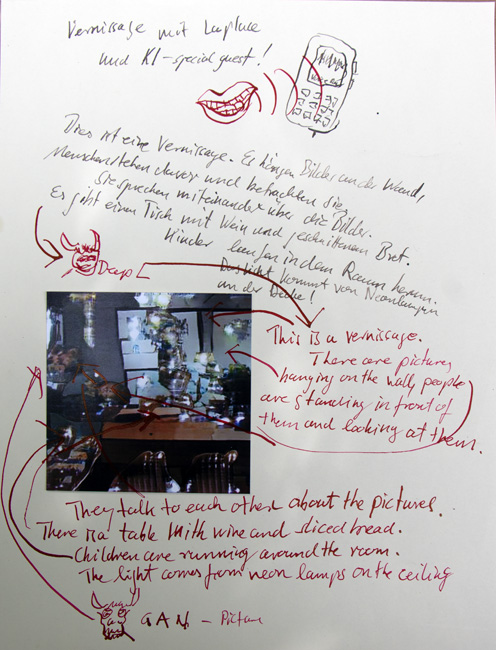 Vernissage mit Laplace
und KI-special guest!
Dies ist eine Vernissage. Es hängen Bilder an der Wand,
Menschen stehen davor und betrachten sie.
Sie sprechen miteinander über die Bilder.
Es gibt einen Tisch mit Wein und geschnittenem Brot.
Kinder laufen in dem Raum herum.
Das Licht kommt von Neonlampen
an der Decke!
DeepL
This is a vernissage.
There are pictures
hanging on the wall, people
are standing in front of
them and looking at them.
They talk to each other about the pictures.
There is a table with wine and sliced bread.
Children are running around the room.
The light comes from neon lamps on the ceiling
GAN - Picture